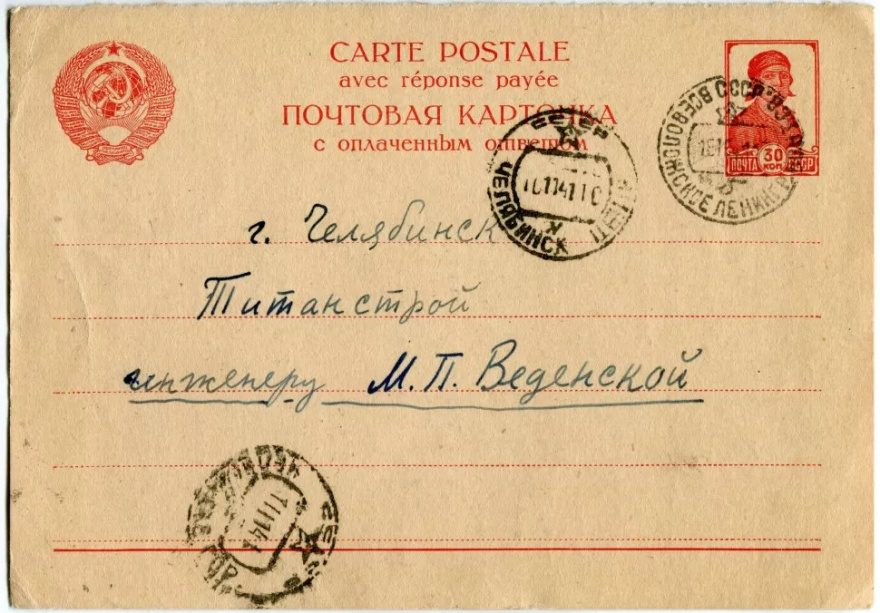 CARTE POSTALE
avec réponse payée
ПОЧТОВАЯ КАРТОЧКА
с оплаченным ответом
ПОЧТА 30 КОП СССР
СССР ВСЕВОЛОЖСКОЕ
ЧЕЛЯБИНСК
г. Челябинск
Титанстрой
инженеру М. П. Веденской